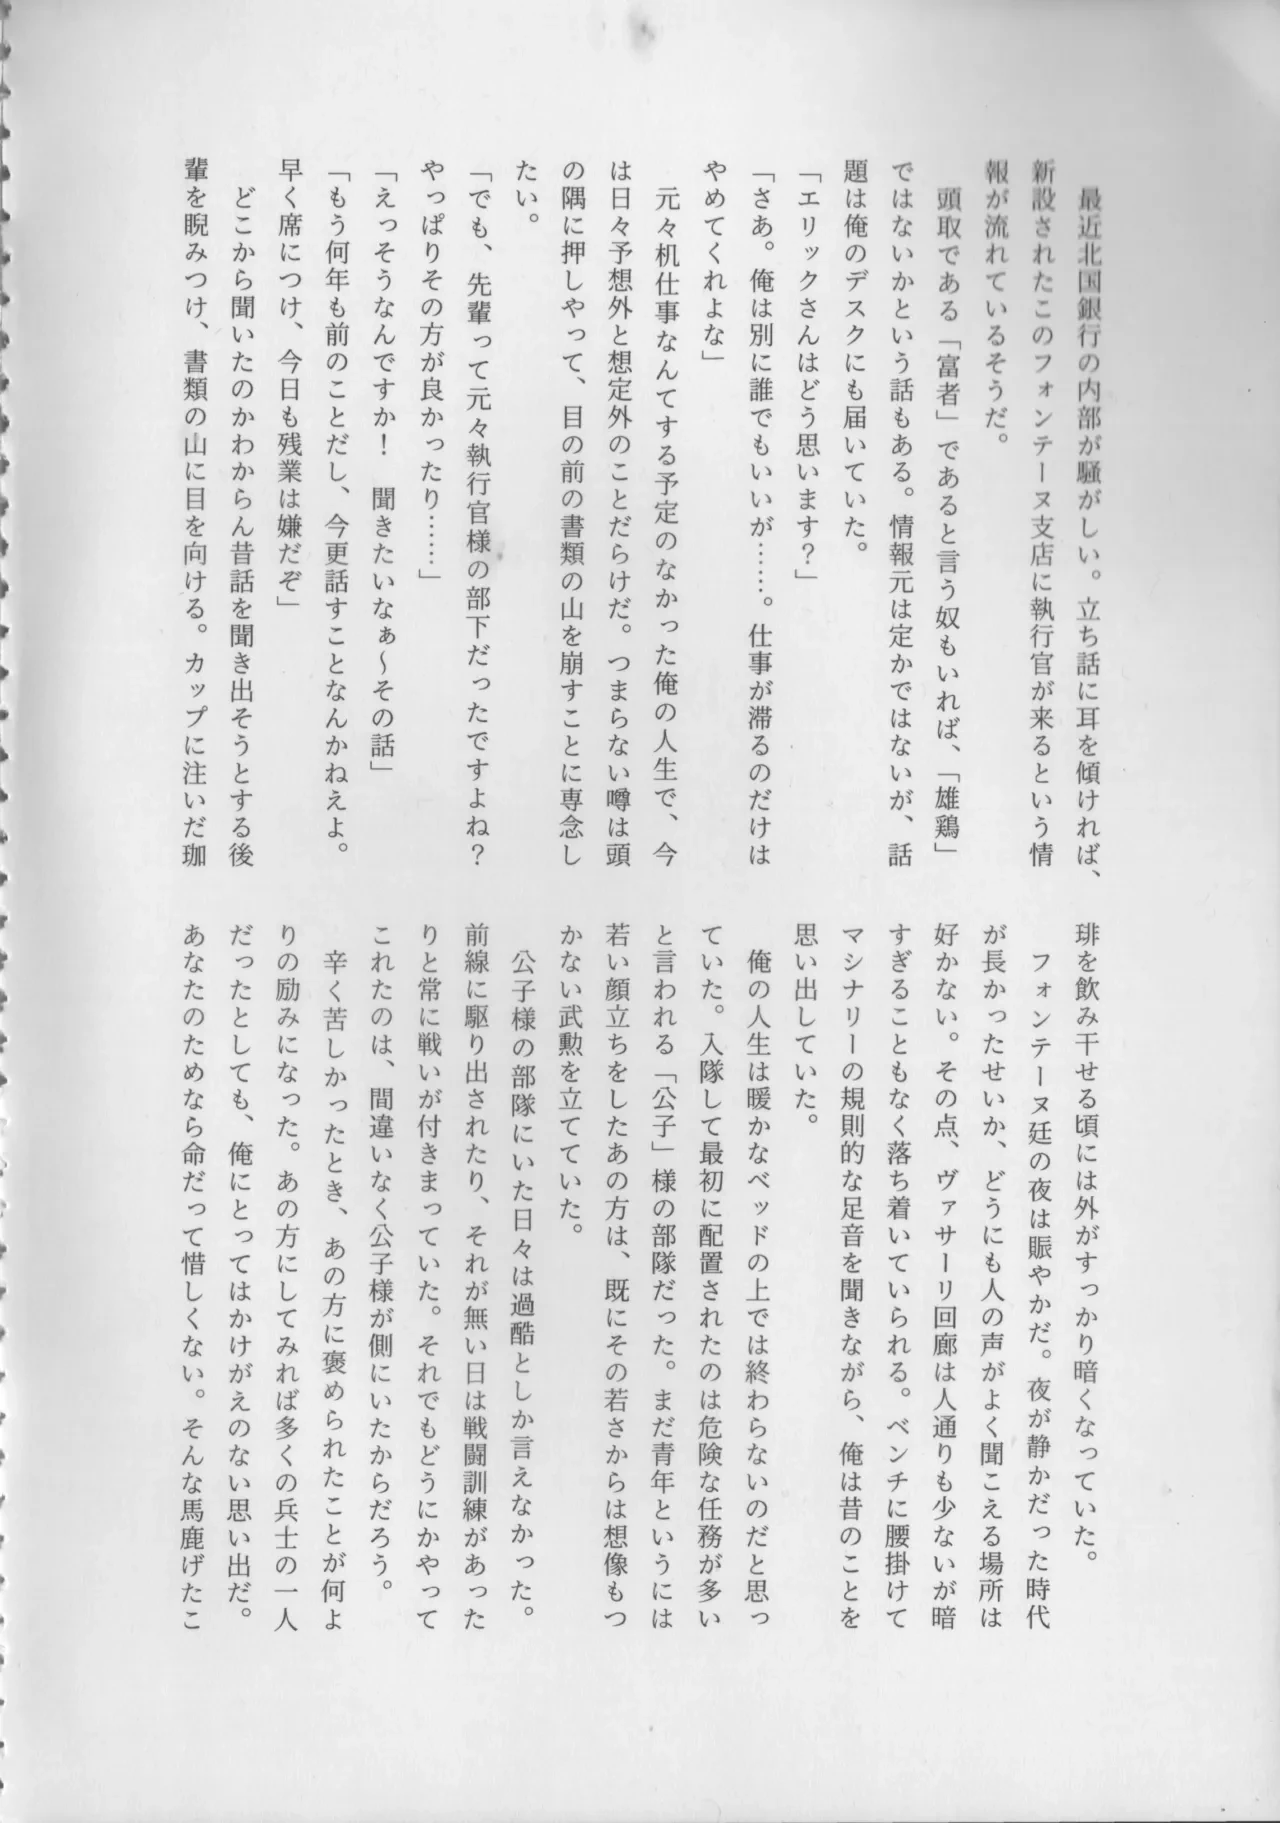 最近北国銀行の内部が騒がしい。立ち話に耳を傾ければ、
新設されたこのフォンテーヌ支店に執行官が来るという情
報が流れているそうだ。
　頭取である「富者」であると言う奴もいれば、「雄鶏」
ではないかという話もある。情報元は定かではないが、話
題は俺のデスクにも届いていた。
「エリックさんはどう思います？」
「さあ。俺は別に誰でもいいが……。仕事が滞るのだけは
やめてくれよな」
　元々机仕事なんてする予定のなかった俺の人生で、今
は日々予想外と想定外のことだらけだ。つまらない噂は頭
の隅に押しやって、目の前の書類の山を崩すことに専念し
たい。
「でも、先輩って元々執行官様の部下だったですよね？
やっぱりその方が良かったり……」
「えっそうなんですか！　聞きたいなぁ～その話」
「もう何年も前のことだし、今更話すことなんかねえよ。
早く席につけ、今日も残業は嫌だぞ」
　どこから聞いたのかわからん昔話を聞き出そうとする後
輩を睨みつけ、書類の山に目を向ける。カップに注いだ珈
琲を飲み干せる頃には外がすっかり暗くなっていた。
　フォンテーヌ廷の夜は賑やかだ。夜が静かだった時代
が長かったせいか、どうにも人の声がよく聞こえる場所は
好かない。その点、ヴァサーリ回廊は人通りも少ないが暗
すぎることもなく落ち着いていられる。ベンチに腰掛けて
マシナリーの規則的な足音を聞きながら、俺は昔のことを
思い出していた。
　俺の人生は暖かなベッドの上では終わらないのだと思っ
ていた。入隊して最初に配置されたのは危険な任務が多い
と言われる「公子」様の部隊だった。まだ青年というには
若い顔立ちをしたあの方は、既にその若さからは想像もつ
かない武勲を立てていた。
　公子様の部隊にいた日々は過酷としか言えなかった。
前線に駆り出されたり、それが無い日は戦闘訓練があった
りと常に戦いが付きまっていた。それでもどうにかやって
これたのは、間違いなく公子様が側にいたからだろう。
　辛く苦しかったとき、あの方に褒められたことが何よ
りの励みになった。あの方にしてみれば多くの兵士の一人
だったとしても、俺にとってはかけがえのない思い出だ。
あなたのためなら命だって惜しくない。そんな馬鹿げたこ